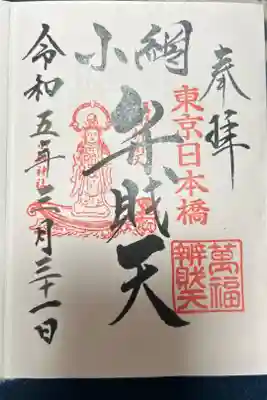 奉拝
東京日本橋
萬福
辨財天
小網
弁財天
令和五年三月三十一日